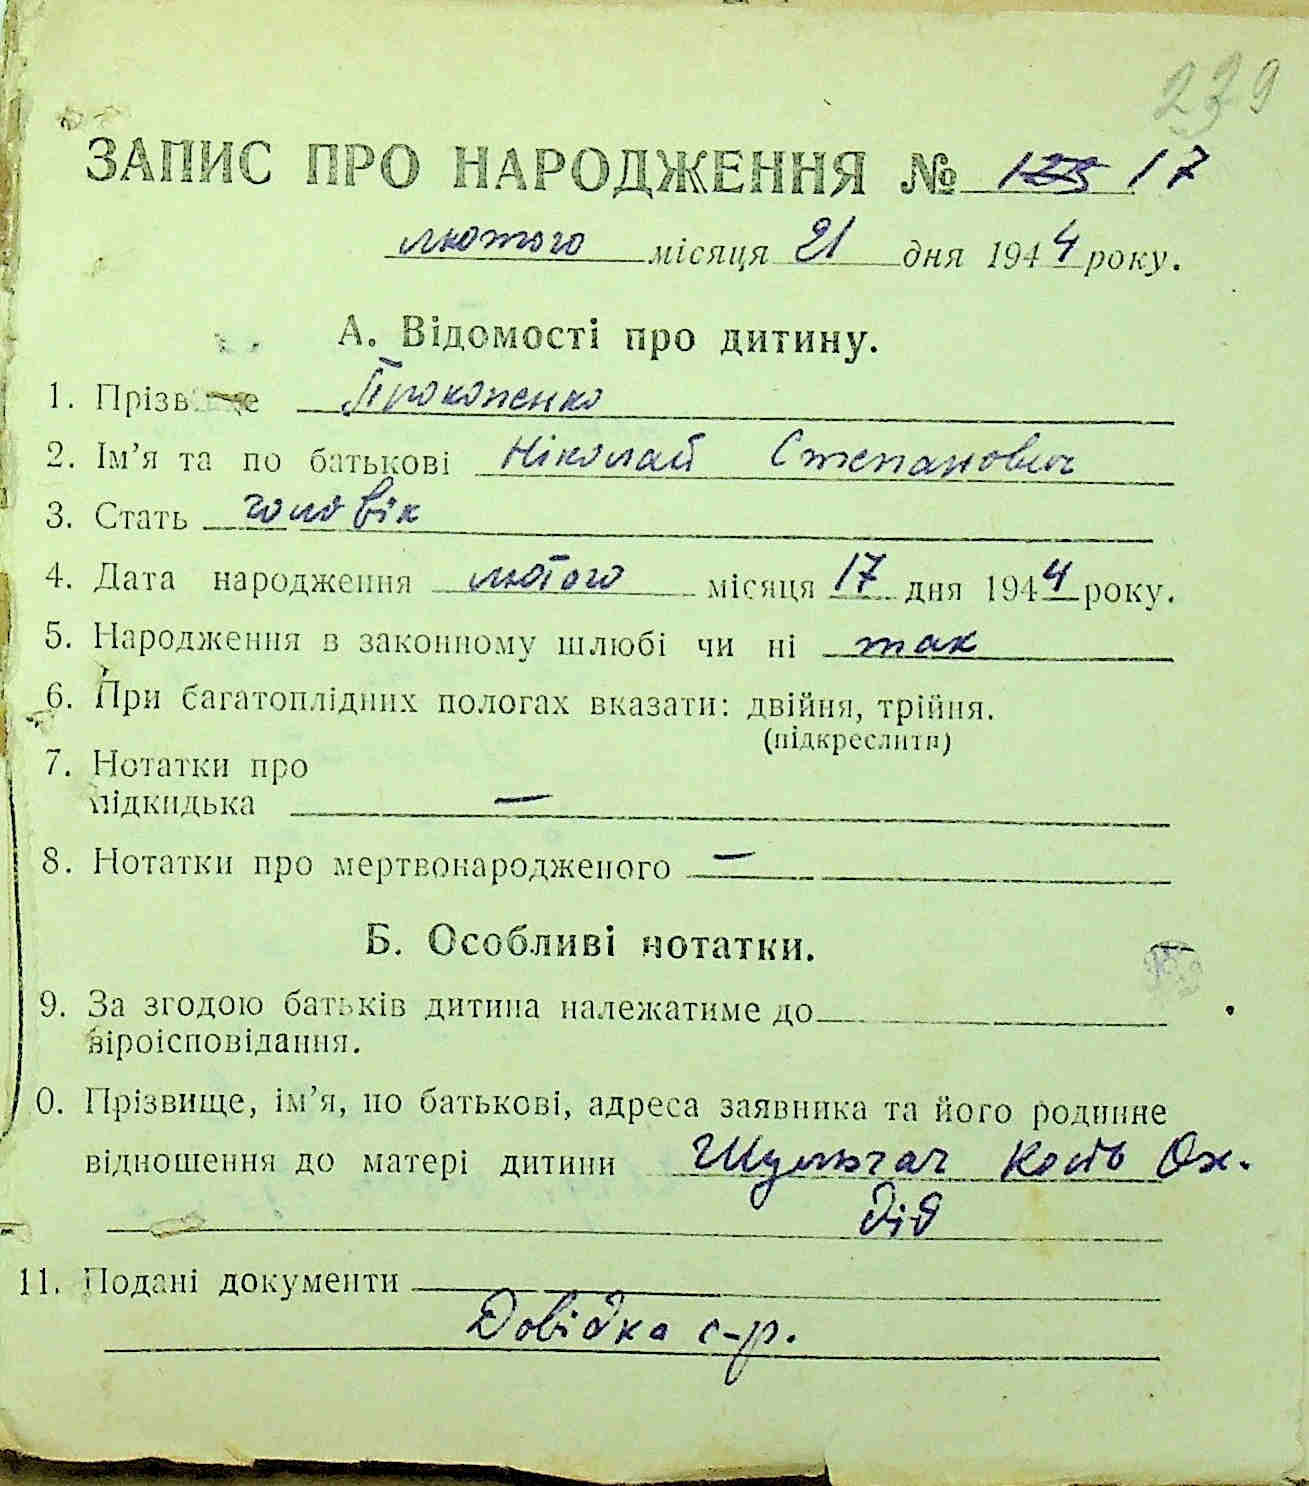 239
ЗАПИС ПРО НАРОДЖЕННЯ № 125 17
лютого місяця 21 дня 1944 року.
А. Відомості про дитину.
1. Прізвище Прокопенко
2. Ім’я та по батькові Ніколай Степанович
3. Стать чоловік
4. Дата народження лютого місяця 17 дня 1944 року.
5. Народження в законному шлюбі чи ні так
6. При багатоплідних пологах вказати: двійня, трійня.
(підкреслити)
7. Нотатки про
підкидька —
8. Нотатки про мертвонародженого —
Б. Особливі нотатки.
9. За згодою батьків дитина належатиме до
віроісповідання.
0. Прізвище, ім’я, по батькові, адреса заявника та його родинне
відношення до матері дитини Шульгач Кость Ох.
дід
11. Подані документи
Довідка с-р.